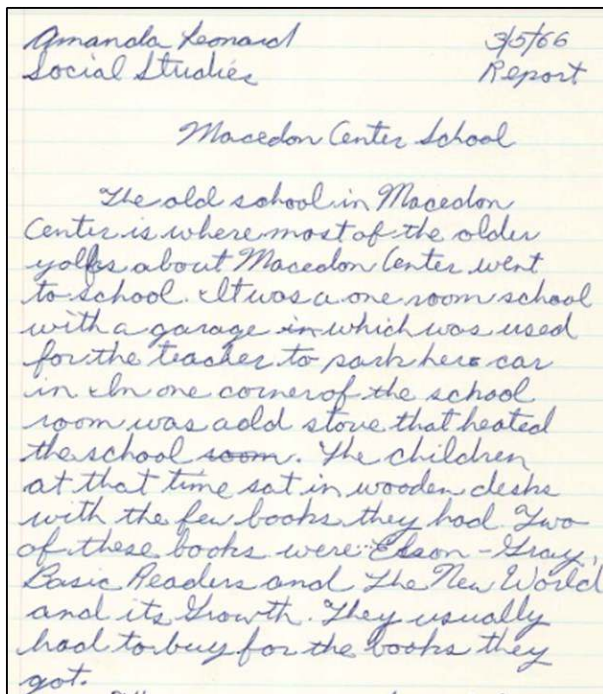 Amanda Leonard 3/5/66
Social Studies Report
Macedon Center School
The old school in Macedon
Center is where most of the older
yolks about Macedon Center went
to school. It was a one room school
with a garage in which was used
for the teacher to park here car
in. In one corner of the school
room was a old stove that heated
the school room. The children
at that time sat in wooden desks
with the few books they had. Two
of these books were Elson-Gray,
Basic Readers and The New World
and its Growth. They usually
had to buy for the books they
got.